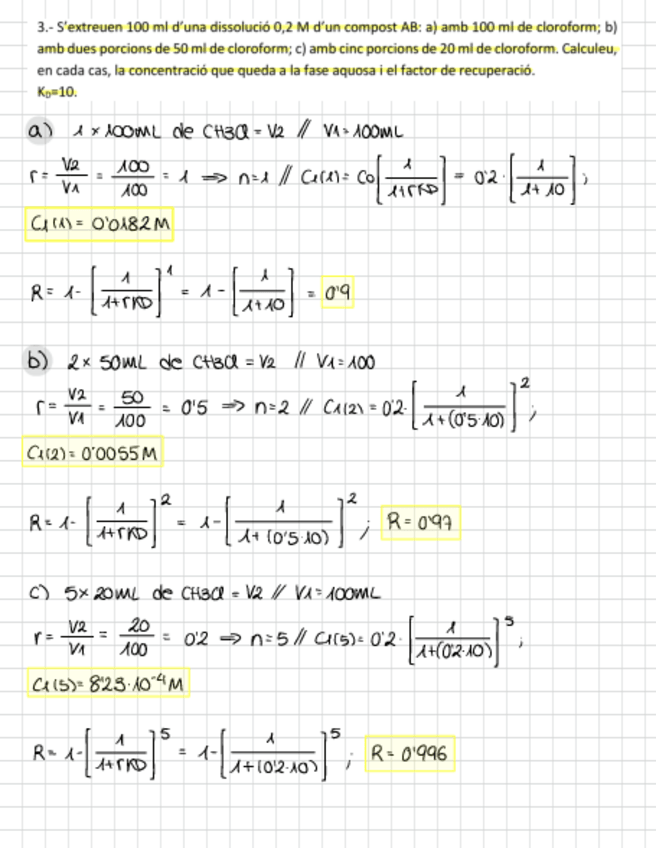 3.- S'extreuen 100 ml d'una dissolució 0,2 M d'un compost AB: a) amb 100 ml de cloroform; b)
amb dues porcions de 50 ml de cloroform; c) amb cinc porcions de 20 ml de cloroform. Calculeu,
en cada cas, la concentració que queda a la fase aquosa i el factor de recuperació.
K_D=10.
a) 1 x 100mL de CH3Cl = V2 // V1 = 100mL
r = V2/V1 = 100/100 = 1 ⟹ n=1 // C1(1) = C0 [1/(1+rKD)] = 0'2 · [1/(1+10)] ;
C1(1) = 0'0182 M
R = 1- [1/(1+rKD)]^1 = 1 - [1/(1+10)] = 0'9
b) 2 x 50mL de CH3Cl = V2 // V1 = 100
r = V2/V1 = 50/100 = 0'5 ⟹ n=2 // C1(2) = 0'2 · [1/(1+(0'5·10))]^2 ;
C1(2) = 0'0055 M
R = 1- [1/(1+rKD)]^2 = 1- [1/(1+(0'5·10))]^2 ; R = 0'97
c) 5 x 20mL de CH3Cl = V2 // V1 = 100mL
r = V2/V1 = 20/100 = 0'2 ⟹ n=5 // C1(5) = 0'2 · [1/(1+(0'2·10))]^5 ;
C1(5) = 8'23·10^-4 M
R = 1- [1/(1+rKD)]^5 = 1- [1/(1+(0'2·10))]^5 ; R = 0'996